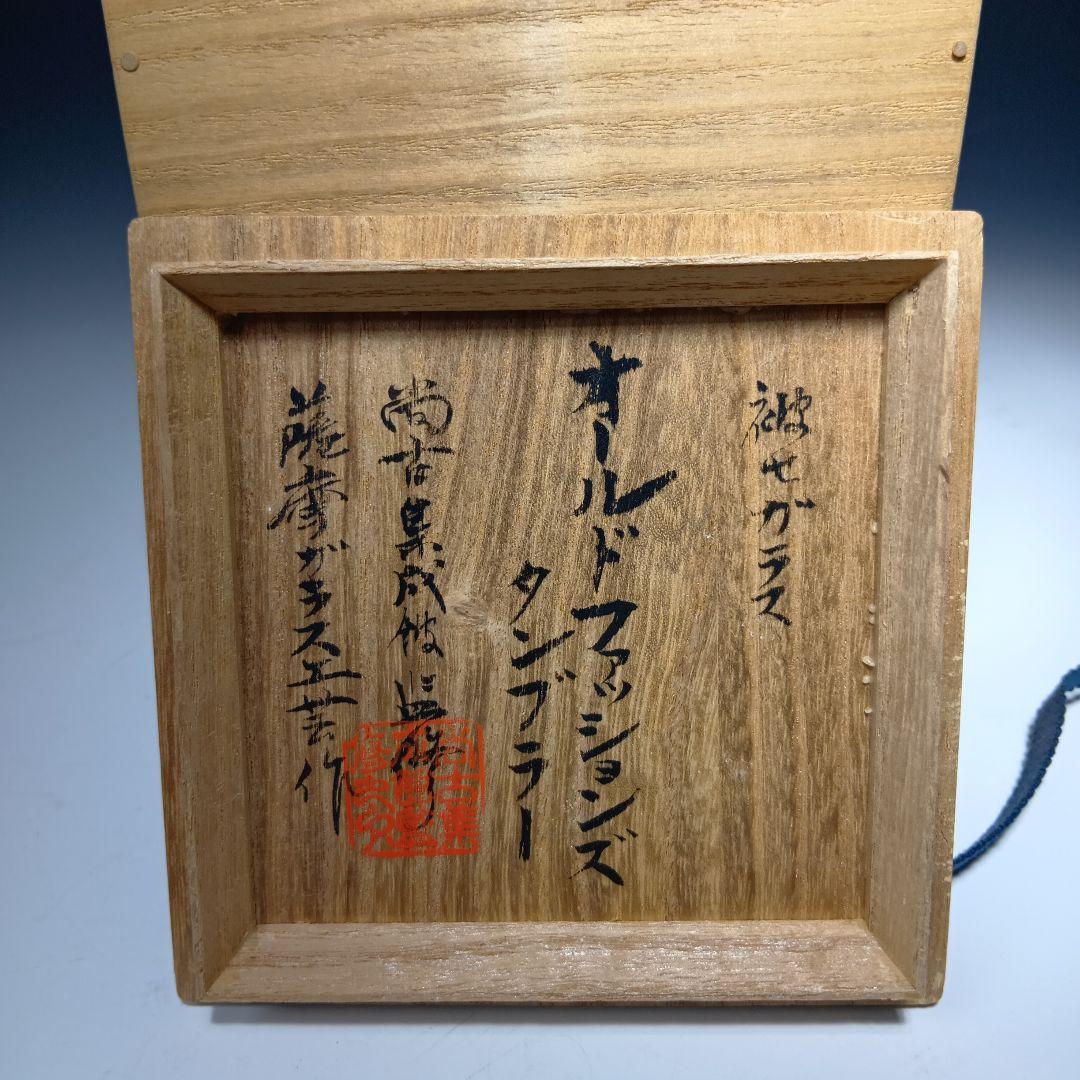 被せガラス
オールドファッションズ
タンブラー
尚古集成館監修
薩摩ガラス工芸作